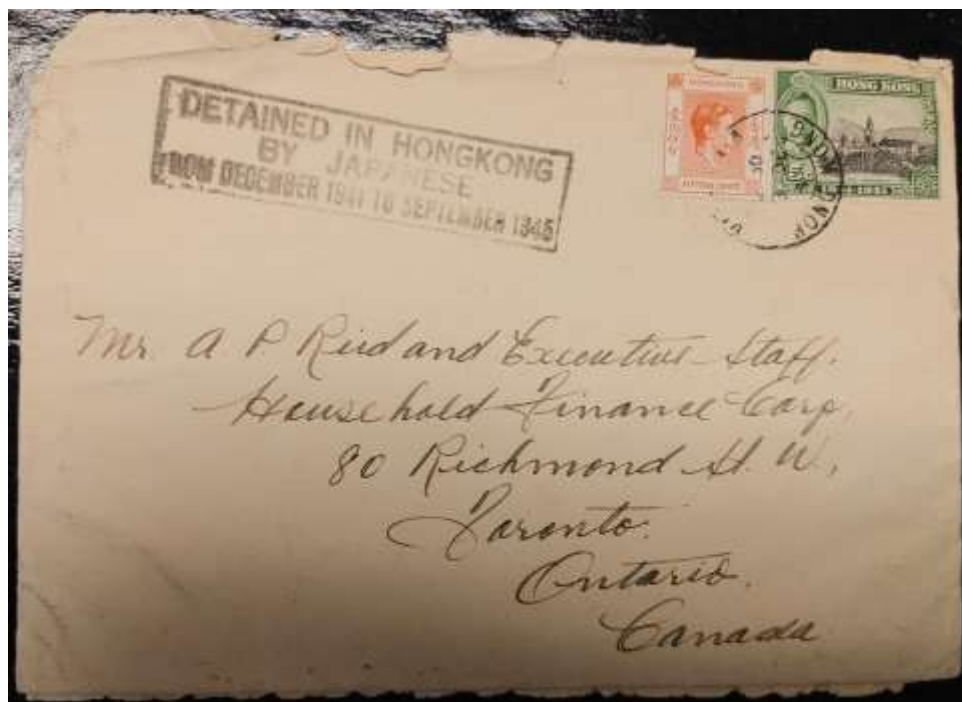 DETAINED IN HONGKONG
BY JAPANESE
FROM DECEMBER 1941 TO SEPTEMBER 1945
HONG KONG
HONG KONG
Mr. A P Reid and Executive Staff.
Household Finance Corp.
80 Richmond St. W.,
Toronto.
Ontario.
Canada